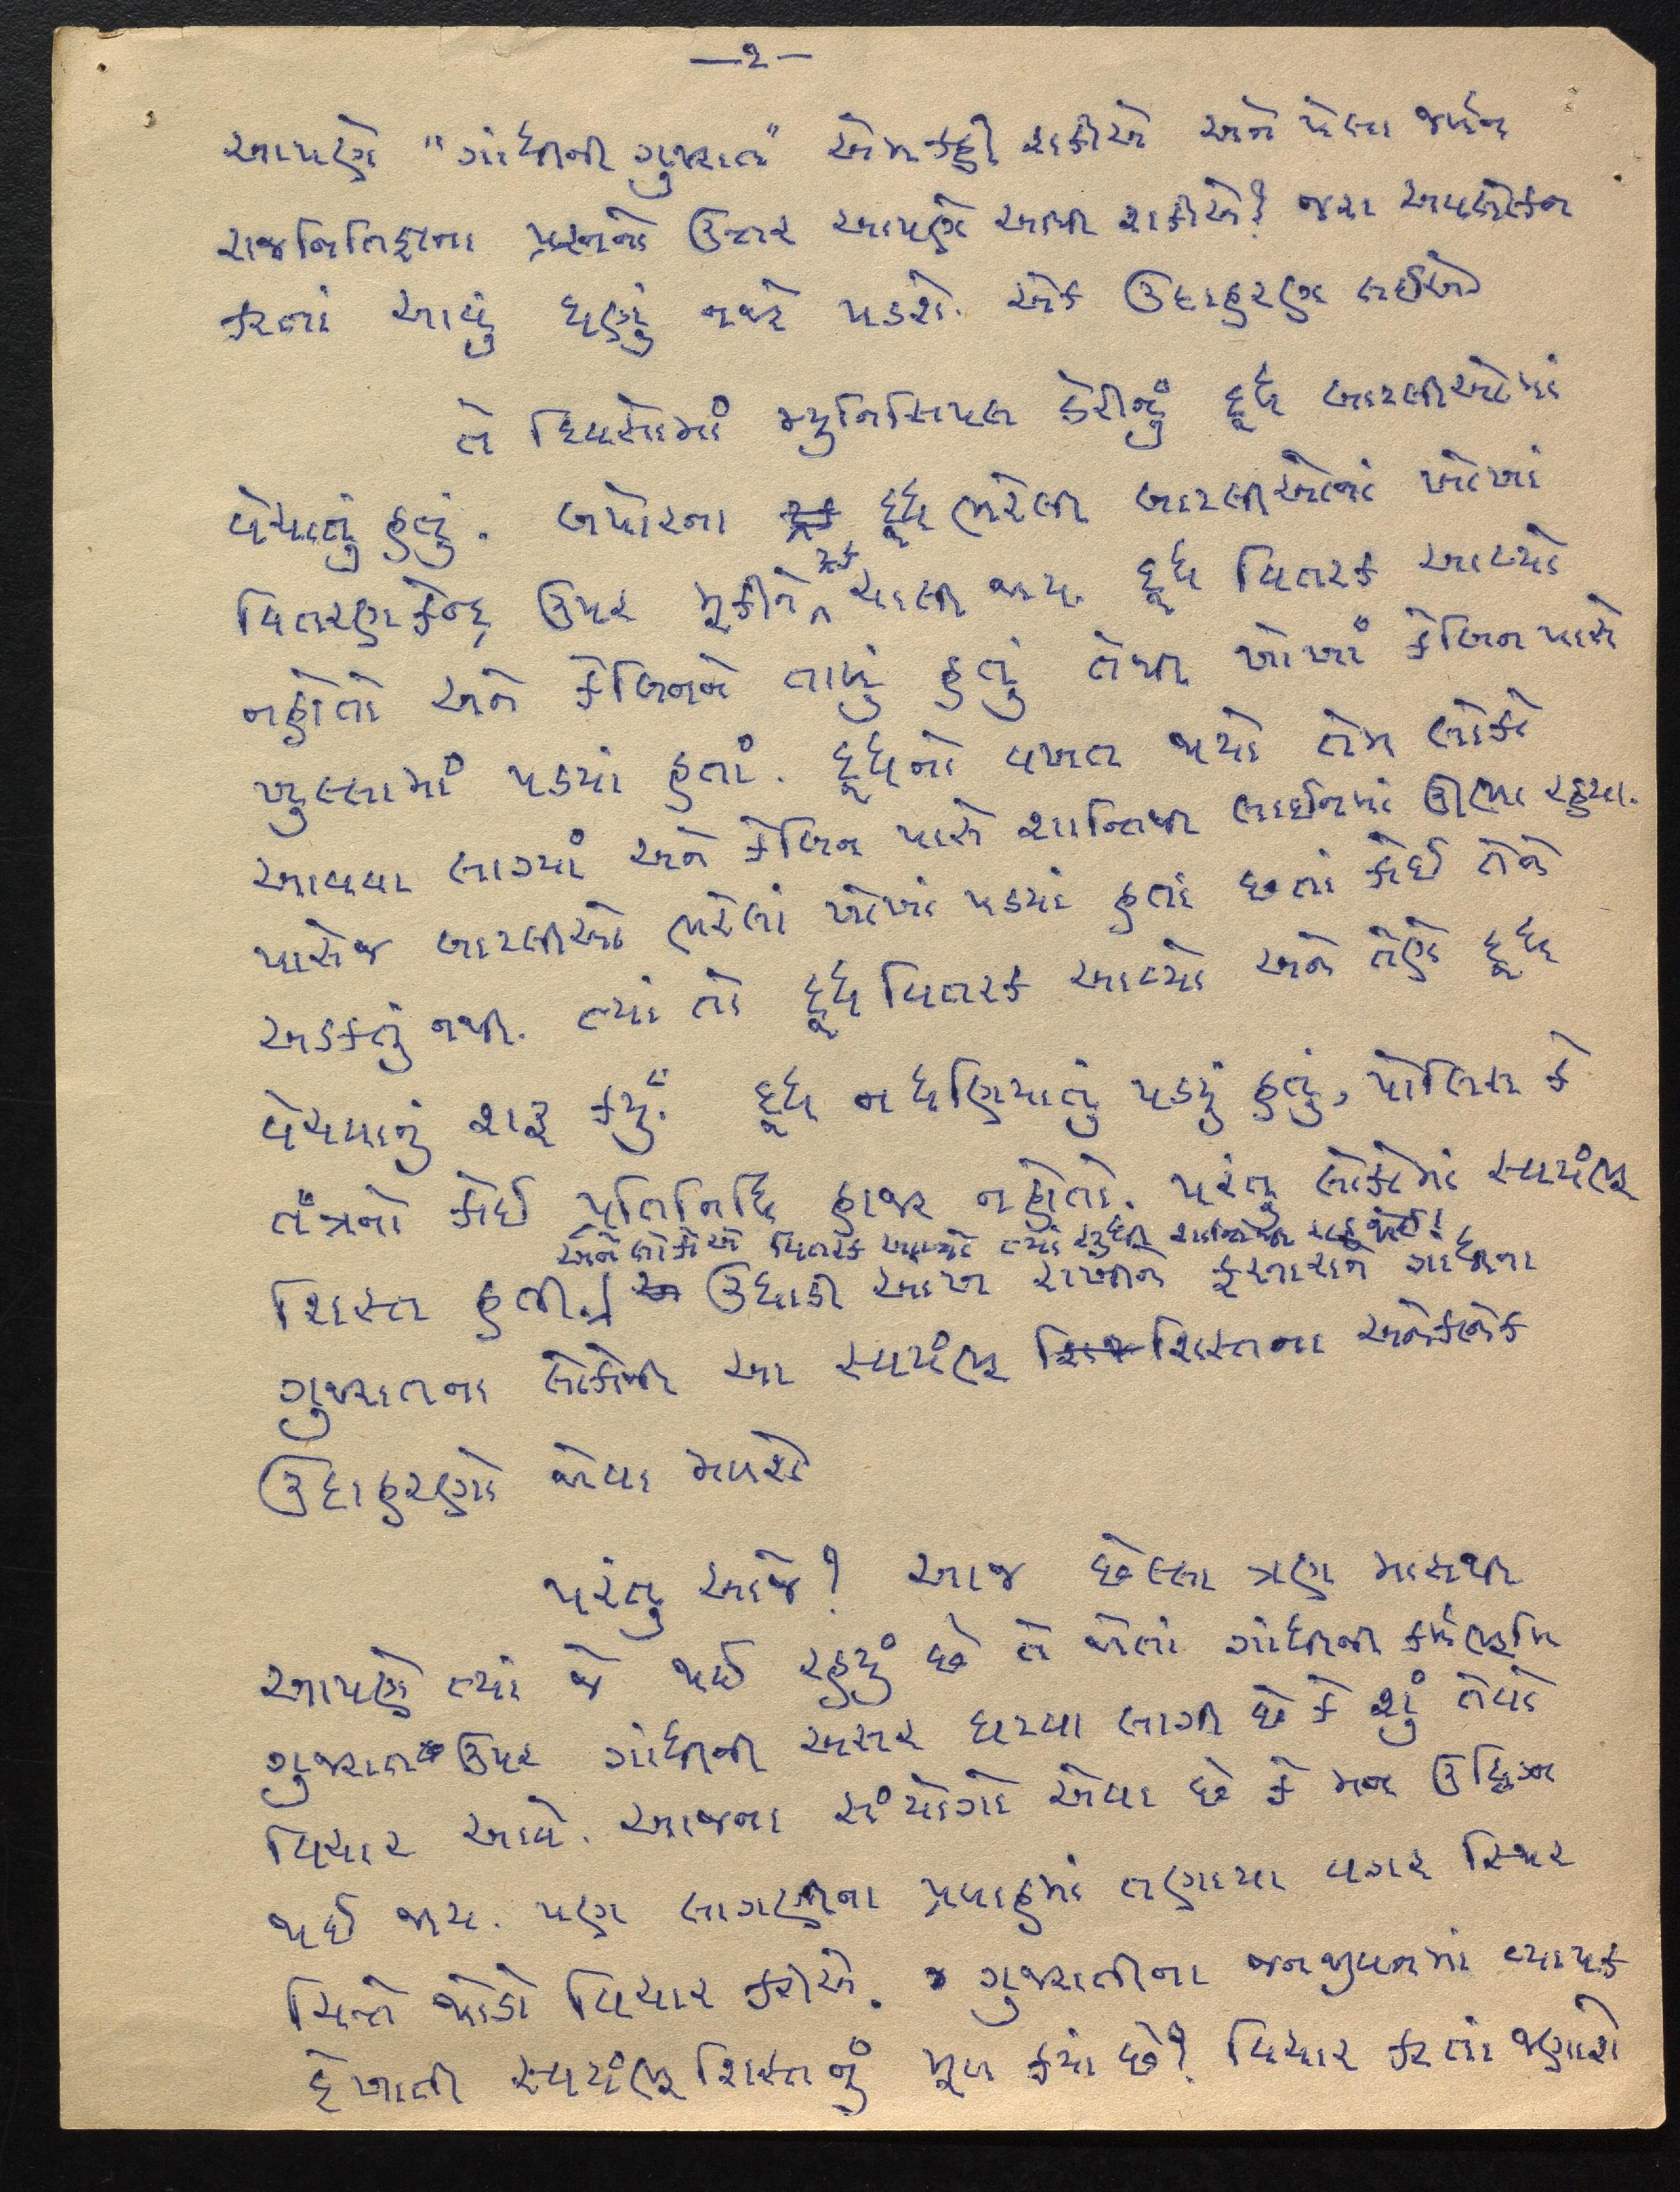 —૨—
આપણે "ગાંધીજીનું ગુજરાત" એમ કહી શકીએ અને પેલા જર્મન
રાજનિતિજ્ઞના પ્રશ્નનો ઉત્તર આપણે આપી શકીએ? જરા અવલોકન
કરતાં આવું ઘણું નજરે પડશે. એક ઉદાહરણ લઈએ
તે દિવસોમાં મ્યુનિસિપલ ડેરીનું દૂધ બાટલીઓમાં
વેચાતું હતું. બપોરના દૂધ ભરેલી બાટલીઓનાં ખોખાં
વિતરણકેન્દ્ર ઉપર મૂકીને ટ્રક ચાલી જાય. દૂધ વિતરક આવ્યો
નહોતો અને કેબિનને તાળું હતું તેથી ખોખાં કેબિન પાસે
ખુલ્લામાં પડ્યાં હતાં. દૂધનો વખત થયો તેમ લોકો
આવવા લાગ્યાં અને કેબિન પાસે શાન્તિથી લાઈનમાં ઊભા રહ્યા.
પાસેજ બાટલીઓ ભરેલાં ખોખાં પડ્યાં હતાં છતાં કોઈ તેને
અડકતું નથી. ત્યાં તો દૂધ વિતરક આવ્યો અને તેણે દૂધ
વેચવાનું શરૂ કર્યું. દૂધ નધણિયાતું પડ્યું હતું, પોલિસ કે
તંત્રનો કોઈ પ્રતિનિધિ હાજર નહોતો. પરંતુ લોકોમાં સ્વયંભૂ
અને લોકોએ વિતરક આવ્યો ત્યાં સુધી શાન્તિથી રાહ જોઈ!
શિસ્ત હતી. ઉઘાડી આંખ રાખીને ફરનારાને ગાંધીના
ગુજરાતના લોકોની આ સ્વયંભૂ શિસ્તના અનેકાનેક
ઉદાહરણો જોવા મળશે
પરંતુ આજે? આજ છેલ્લા ત્રણ માસથી
આપણે ત્યાં જે થઈ રહ્યું છે તે જોતાં ગાંધીજી કર્મભૂમિ
ગુજરાત ઉપર ગાંધીજી અસર ઘટવા લાગી છે કે શું તેવો
વિચાર આવે. આજના સંયોગો એવા છે કે મન ઉદ્વિગ્ન
થઈ જાય. પણ લાગણીના પ્રવાહમાં તણાયા વગર સ્થિર
ચિત્તે થોડો વિચાર કરીએ. ગુજરાતીના જનજીવનમાં વ્યાપક
દેખાતી સ્વયંભૂ શિસ્તનું મૂળ ક્યાં છે? વિચાર કરતાં જણાશે